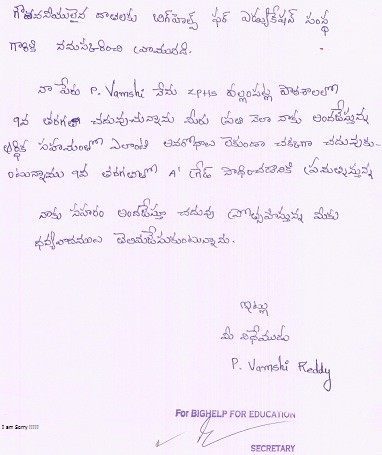 గౌరవనీయులైన దాతలకు బిగ్‌హెల్ప్ ఫర్ ఎడ్యుకేషన్ సంస్థ
గారికి నమస్కరించి వ్రాయునది.
నా పేరు P. Vamshi నేను ZPHS కుల్లంపల్లి పాఠశాలలో
9వ తరగతి చదువుచున్నాను మీరు ప్రతి నెలా నాకు అందజేస్తున్న
ఆర్థిక సహాయంతో ఎలాంటి అవరోధాలు లేకుండా చక్కగా చదువుకు-
ంటున్నాను 9వ తరగతిలో A' గ్రేడ్ సాధించడానికి ప్రయత్నిస్తున్న
నాకు సహకారం అందజేస్తూ చదువు ప్రోత్సహిస్తున్న మీకు
ధన్యవాదములు తెలియజేసుకుంటున్నాను.
ఇట్లు
మీ విధేయుడు
P. Vamshi Reddy
For BIGHELP FOR EDUCATION
I am Sorry !!!!!
SECRETARY